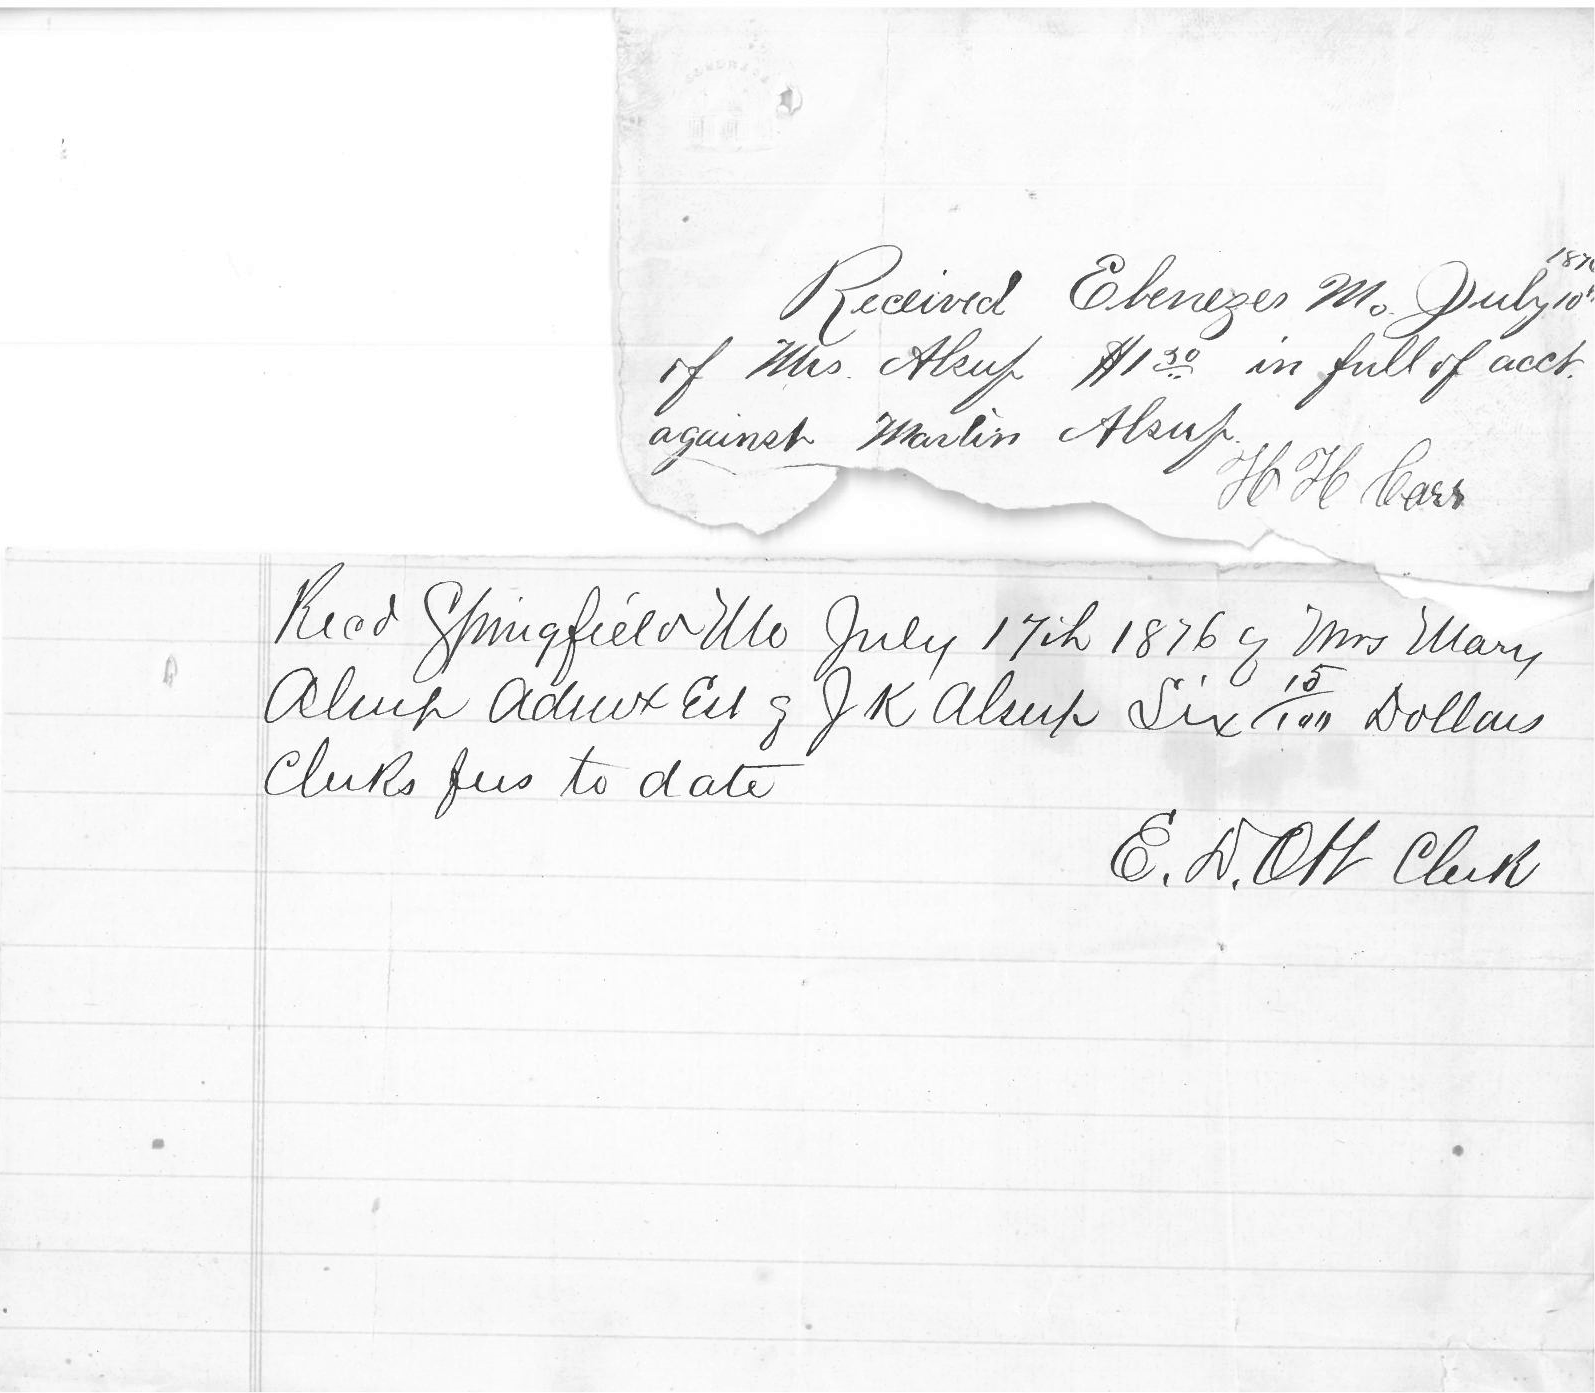 CONGRESS
1876
Received Ebenezer Mo. July 10th
of Mrs. Alsup $1 30 in full of acct.
against Martin Alsup.
H H Carr
Recd Springfield Mo July 17th 1876 of Mrs Mary
Alsup Admx Est of J K Alsup Six 15/100 Dollars
Clerks fees to date
E. D. Ott Clerk